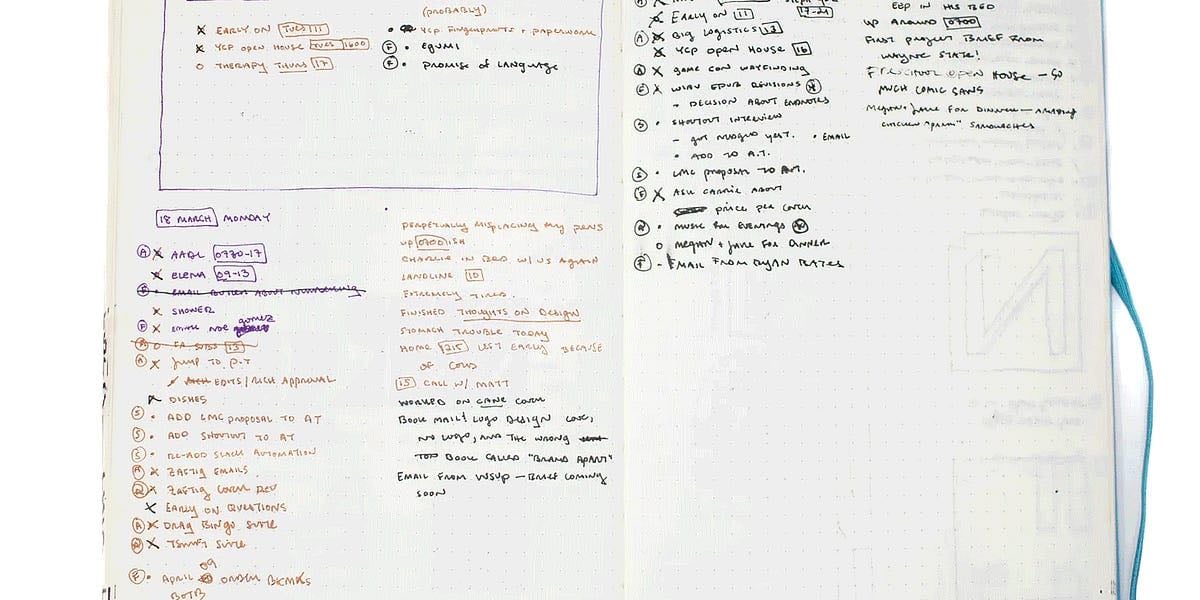 (PROBABLY)
× EARLY ON TUES 11
× YCP OPEN HOUSE TUES 1600
○ THERAPY THURS 17
• YCP FINGERPRINTS + PAPERWORK
F • EQUMI
F • PROMISE OF LANGUAGE
18 MARCH MONDAY
A × AADL 0730-17
× ELENA 09-13
F • EMAIL BUTLER ABOUT NUMBERING
× SHOWER
F × EMAIL NOE GOMEZ
A ○ FA SUBS 13
A × JUMP TO P.T
× EDITS/RICH APPROVAL
× DISHES
S • ADD LMC PROPOSAL TO AT
S • ADD SHOUTOUT TO AT
S • RE-ADD SLACK AUTOMATION
A × ZAFTIG EMAILS
× ZAFTIG COVER REV
× EARLY ON QUESTIONS
A × DRAG BINGO SUITE
A × TSWIFT SUITE
09
F • APRIL ORDER
BOTB
PERPETUALLY MISPLACING MY PENS
UP 0700 ISH
CHARLIE IN BED W/ US AGAIN
LANDLINE 10
EXTREMELY TIRED.
FINISHED THOUGHTS ON DESIGN
STOMACH TROUBLE TODAY
HOME 1215 LEFT EARLY BECAUSE
OF COLD
15 CALL W/ MATT
WORKED ON CANE COVER
BOOK MAIL! LOGO DESIGN LOVE,
NO LOGO, AND THE WRONG
TOP BOOK CALLED "BRAND APART"
EMAIL FROM WSUP – BRIEF COMING
SOON
× EARLY ON 11 17-21
A × BIG LOGISTICS 13
× YCP OPEN HOUSE 16
A × GAME CON WAYFINDING
F × EPUB REVISIONS
• DECISION ABOUT ENDNOTES
S • SHOUTOUT INTERVIEW
– YEST. • EMAIL
• ADD TO A.T.
S • LMC PROPOSAL TO A.T.
F × ASK CARRIE ABOUT
PRICE PER COVER
A • MUSIC FOR EVENINGS
○ MEGHAN + JANE FOR DINNER
F • EMAIL FROM RYAN BATES
EOP IN HIS BED
UP AROUND 0700
FIRST PROJECT BRIEF FROM
WAYNE STATE!
PRESCHOOL OPEN HOUSE – SO
MUCH COMIC SANS
MEGHAN + JANE FOR DINNER – AMAZING
CHICKEN "PARM" SANDWICHES